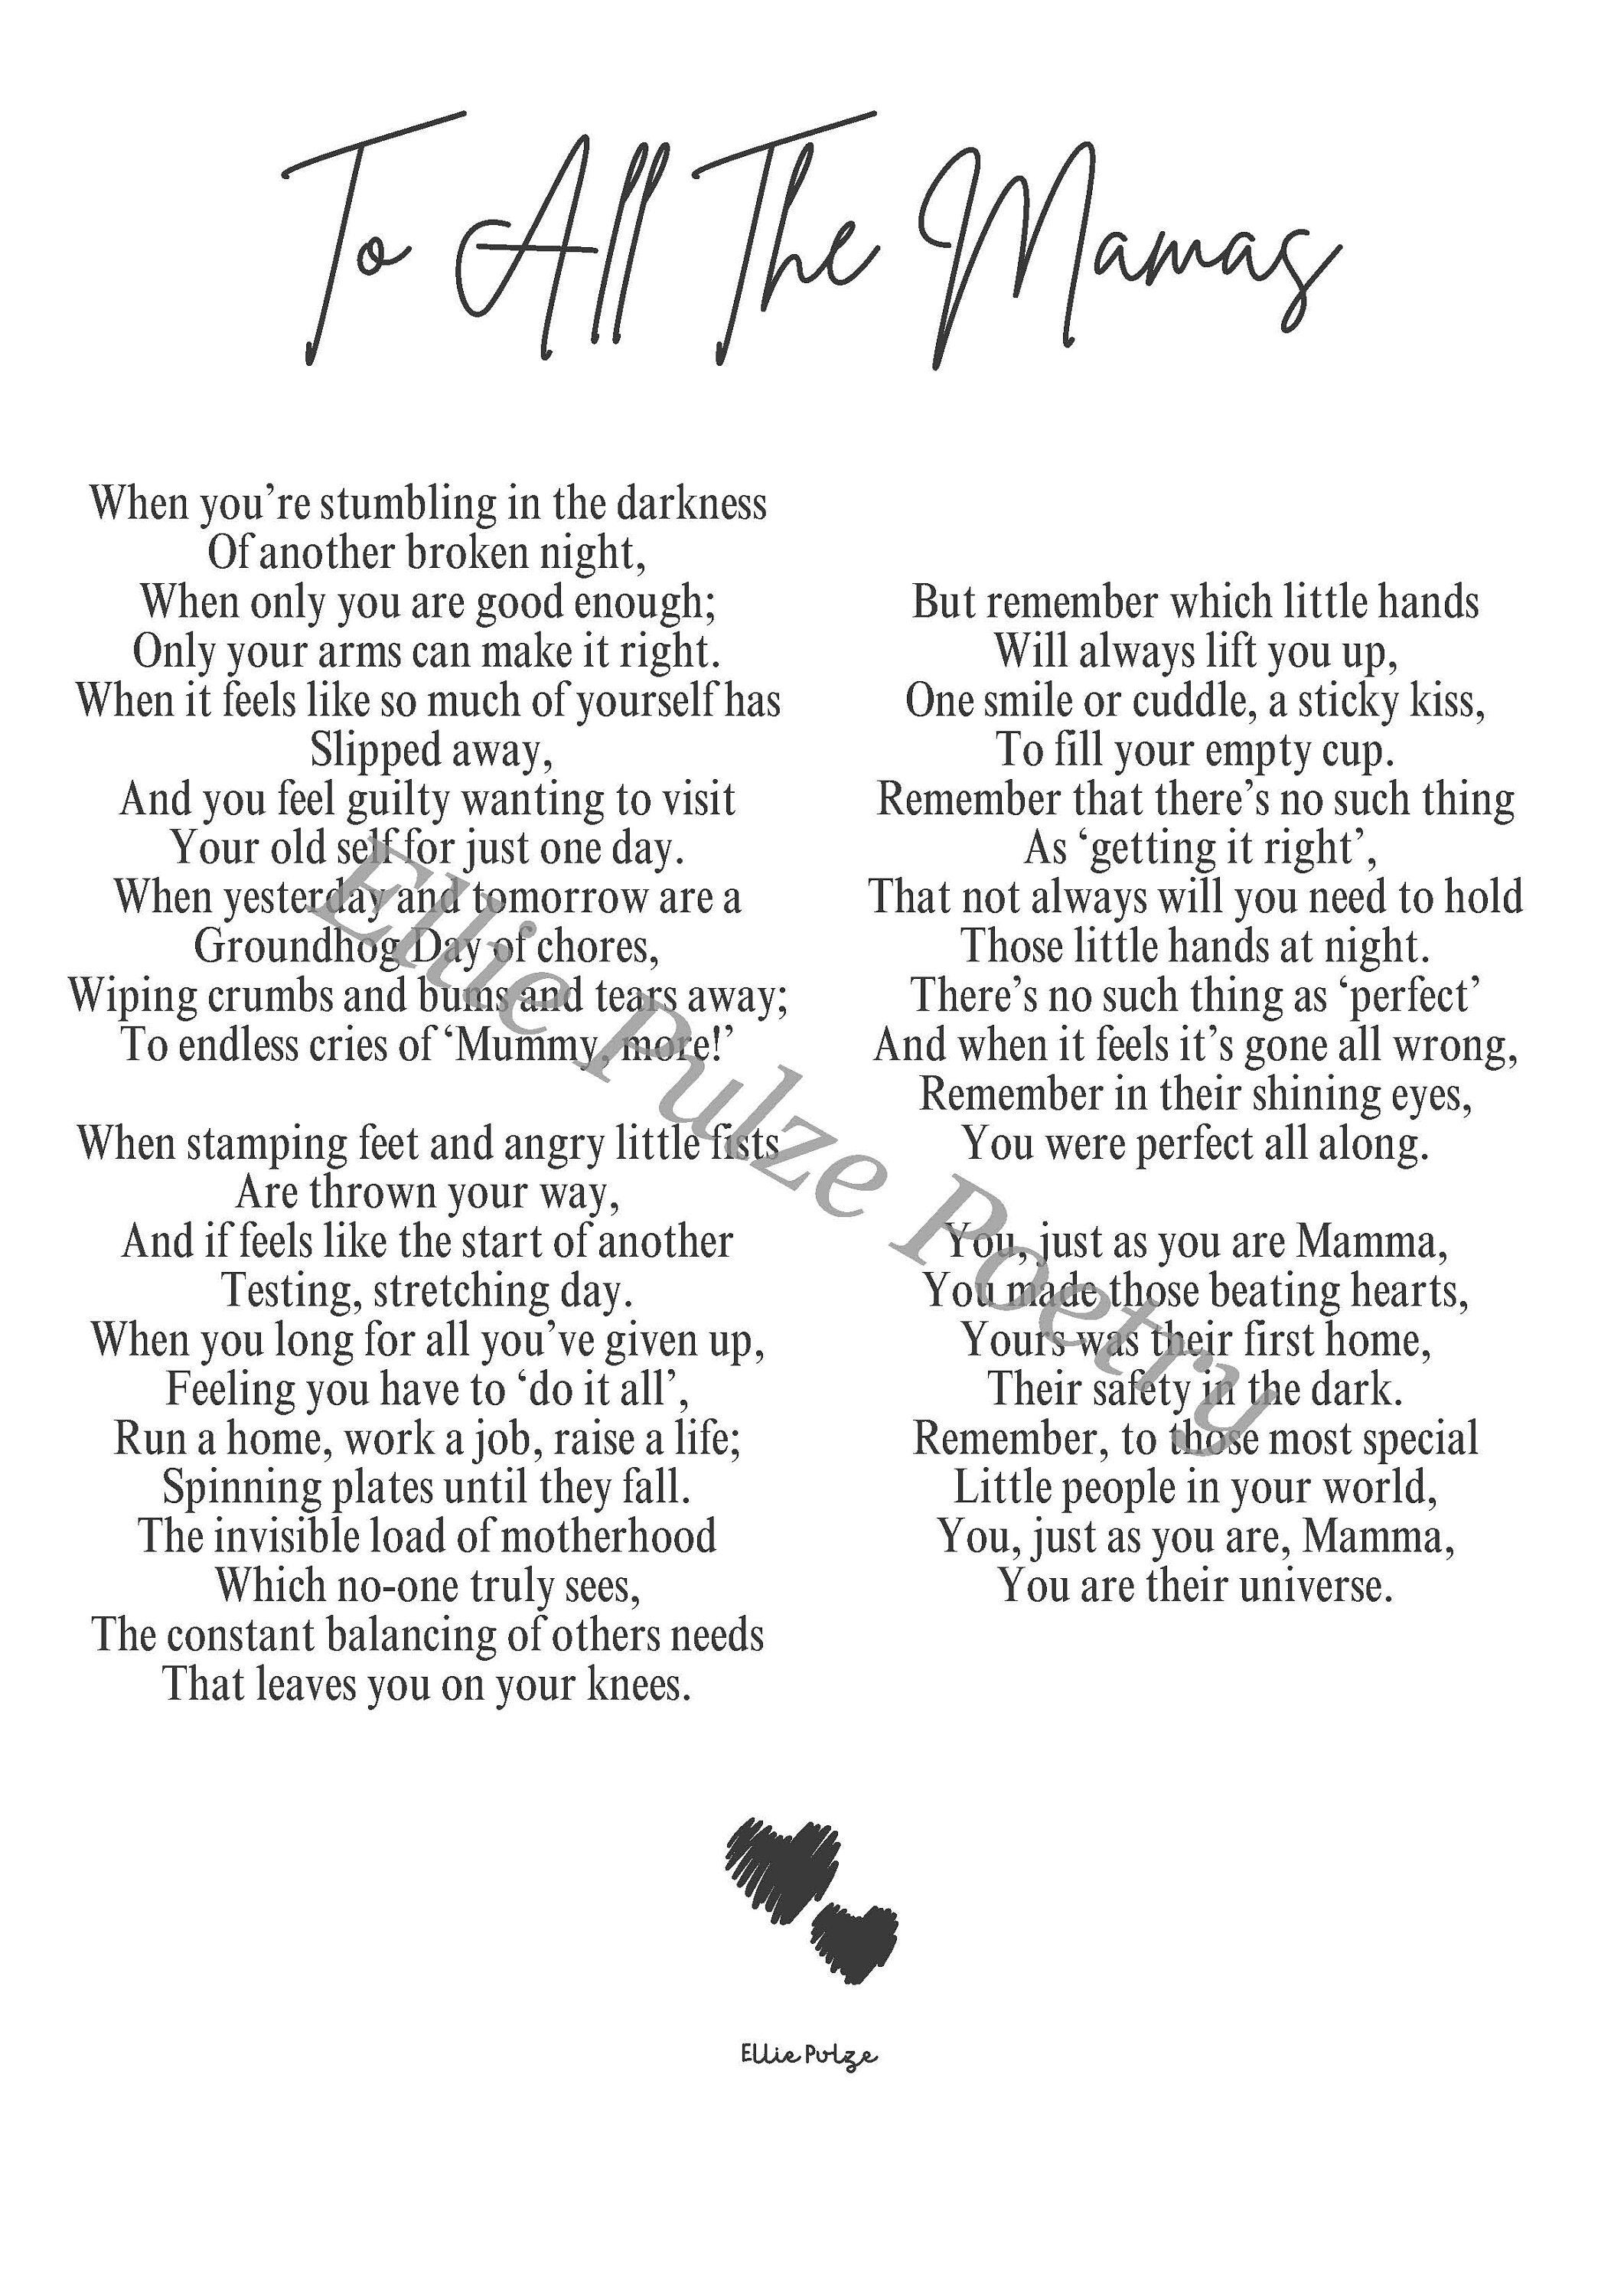 To All The Mamas
When you’re stumbling in the darkness
Of another broken night,
When only you are good enough;
Only your arms can make it right.
When it feels like so much of yourself has
Slipped away,
And you feel guilty wanting to visit
Your old self for just one day.
When yesterday and tomorrow are a
Groundhog Day of chores,
Wiping crumbs and bums and tears away;
To endless cries of ‘Mummy, more!’
When stamping feet and angry little fists
Are thrown your way,
And if feels like the start of another
Testing, stretching day.
When you long for all you’ve given up,
Feeling you have to ‘do it all’,
Run a home, work a job, raise a life;
Spinning plates until they fall.
The invisible load of motherhood
Which no-one truly sees,
The constant balancing of others needs
That leaves you on your knees.
But remember which little hands
Will always lift you up,
One smile or cuddle, a sticky kiss,
To fill your empty cup.
Remember that there’s no such thing
As ‘getting it right’,
That not always will you need to hold
Those little hands at night.
There’s no such thing as ‘perfect’
And when it feels it’s gone all wrong,
Remember in their shining eyes,
You were perfect all along.
You, just as you are Mamma,
You made those beating hearts,
Yours was their first home,
Their safety in the dark.
Remember, to those most special
Little people in your world,
You, just as you are, Mamma,
You are their universe.
Ellie Pulze Poetry
Ellie Pulze